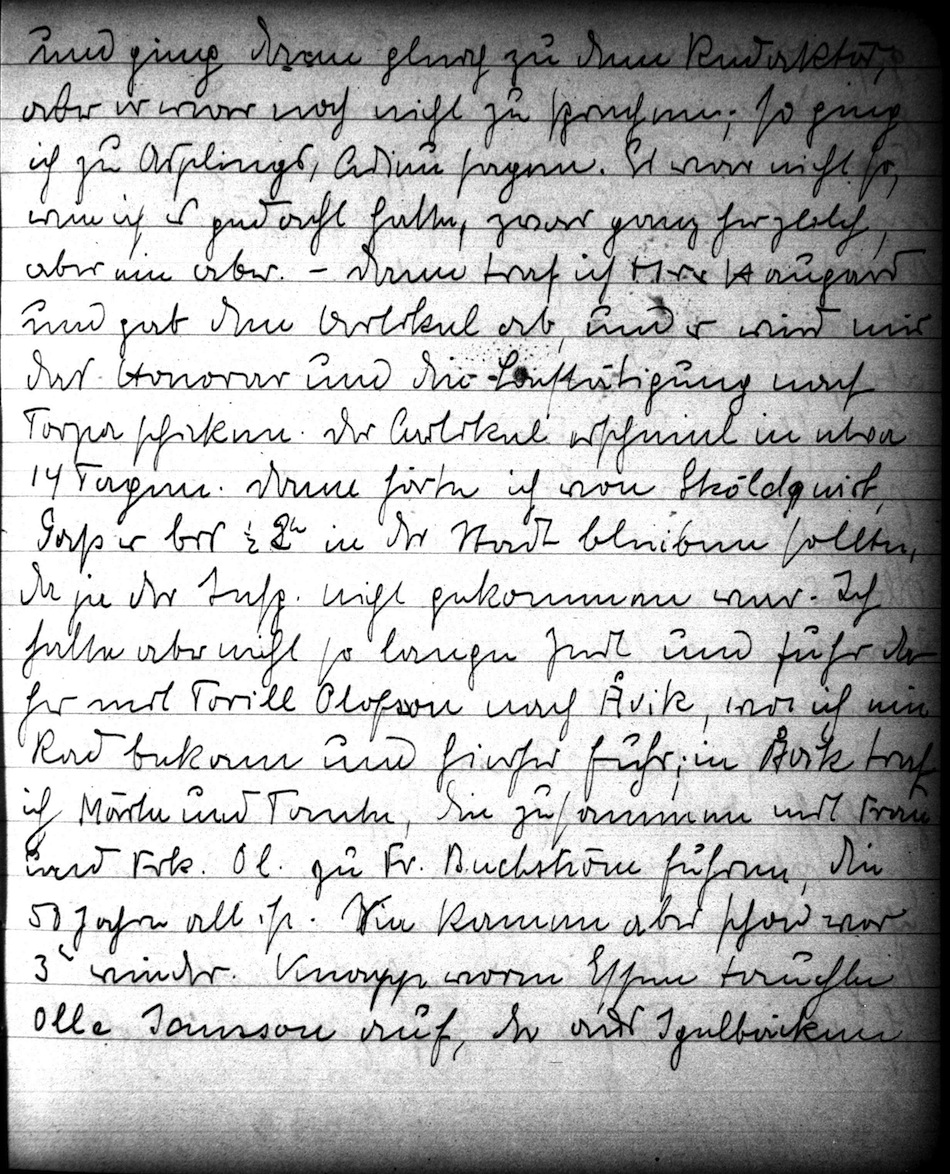 und ging dann gleich zu dem Redaktör,
aber er war noch nicht zu sprechen; so ging
ich zu Asplings, Adieu sagen. Es war nicht so,
wie ich es gedacht hatte, zwar ganz herzlich,
aber ein aber. – Dann traf ich Haugard
und gab den Artikel ab, und er wird mir
das Honorar und die Bestätigung nach
Torpa schicken. Der Artikel erscheint in etwa
14 Tagen. Dann hörte ich von Sköldqvist,
dass er bis ½ 2h in der Stadt bleiben sollte,
da ja der Insp. nicht gekommen war. Ich
hatte aber nicht so lange Zeit und fuhr da-
her mit Torill Olofson nach Åvik, wo ich ein
Rad bekam und hierher fuhr; in Åvik traf
ich Märta und Tante, die zusammen mit Frau
und Frk. Ol. zu Fr. Buchström fuhren, die
50 Jahre alt ist. Sie kamen aber schon vor
3h wieder. Knapp vorm Essen tauchte
Olle Jansson auf, der aus Igelbäcken